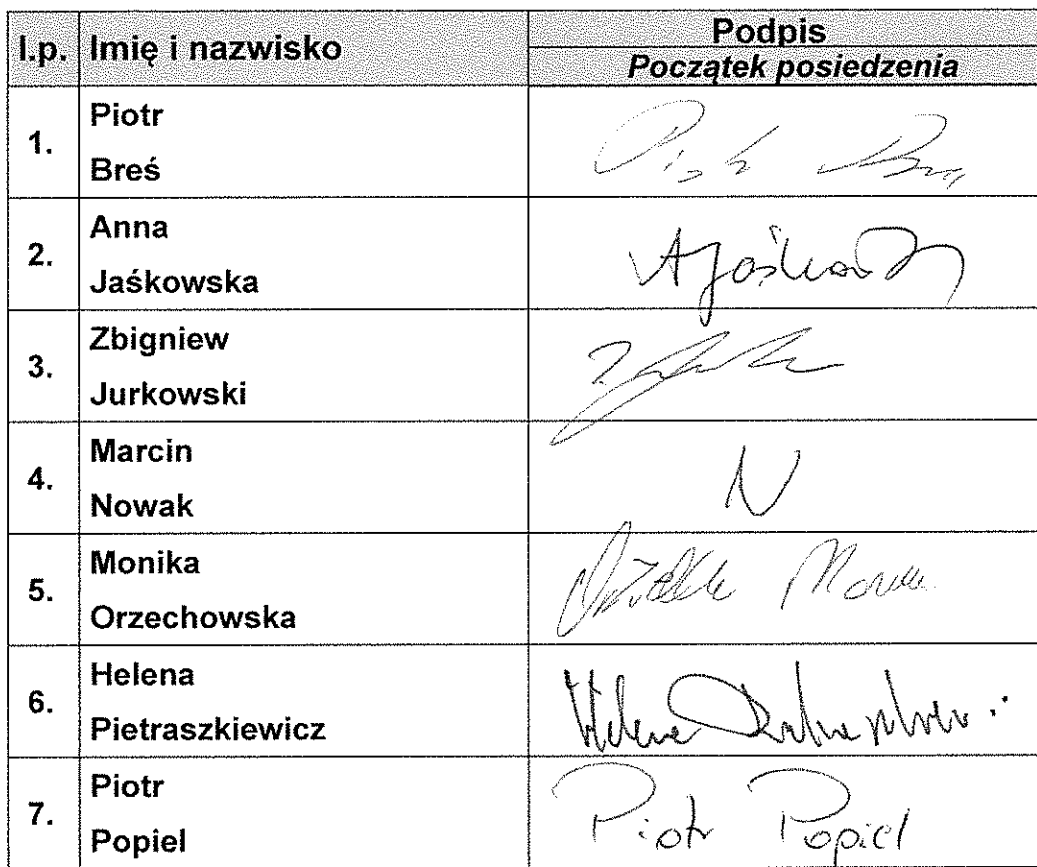 l.p. Imię i nazwisko Podpis
Początek posiedzenia
1. Piotr
Breś
2. Anna
Jaśkowska
3. Zbigniew
Jurkowski
4. Marcin
Nowak
N
5. Monika
Orzechowska
6. Helena
Pietraszkiewicz
Helena
7. Piotr
Popiel
Piotr Popiel